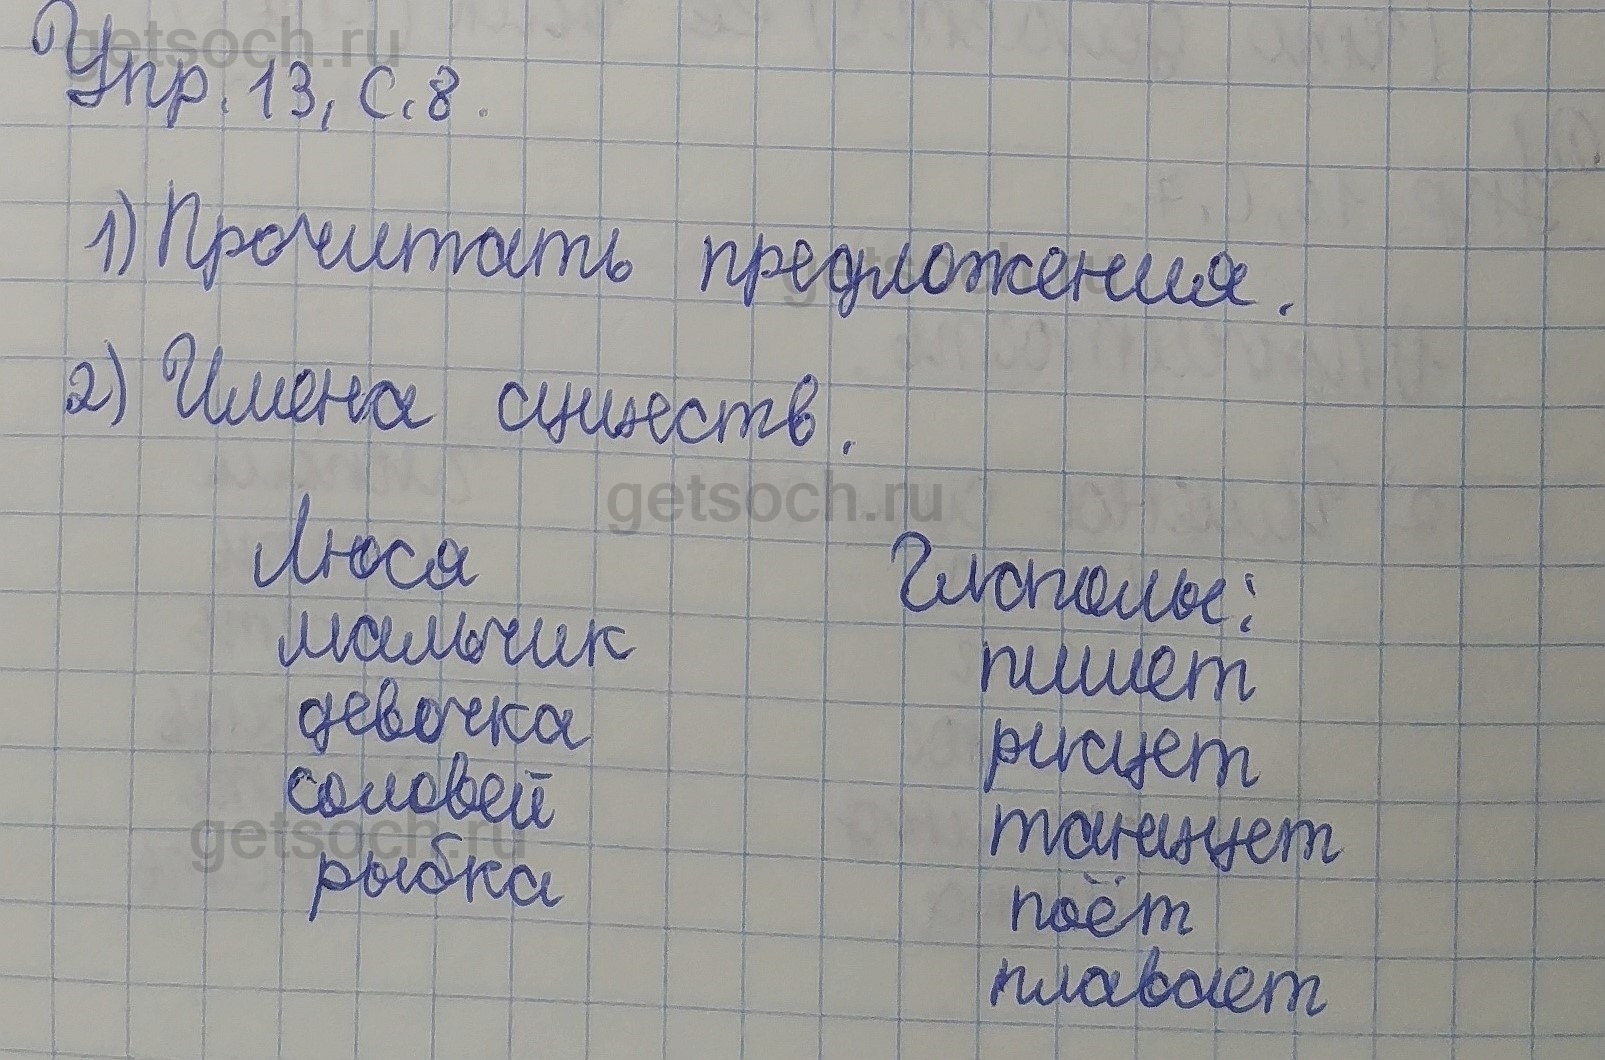 getsoch.ru
Упр. 13, с. 8.
1) Прочитать предложения.
getsoch.ru
2) Имена существ.
getsoch.ru
Люся
мальчик
девочка
соловей
getsoch.ru
рыбка
Глаголы:
пишет
рисует
танцует
поёт
плавает